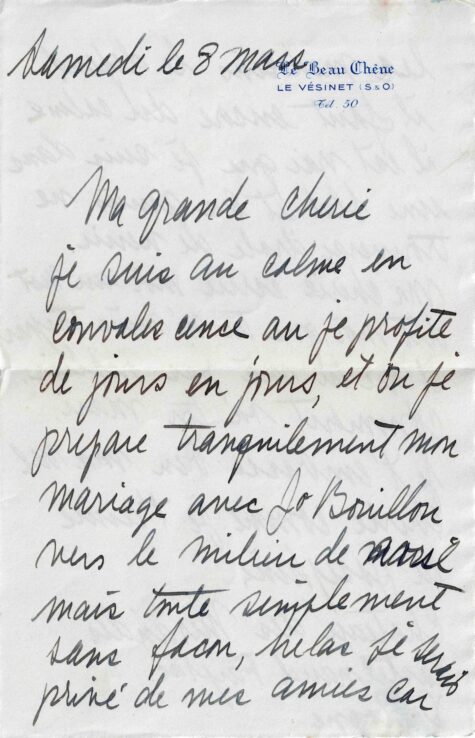 Samedi le 8 mars
Le Beau Chêne
LE VÉSINET (S & O)
Tél. 50
Ma grande cherie
je suis au calme en
convalescence au je profite
de jours en jours, et ou je
prepare tranquilement mon
mariage avec Jo Bouillon
vers le milieu de
mais toute simplement
sans facon, helas je serais
privé de mes amies car